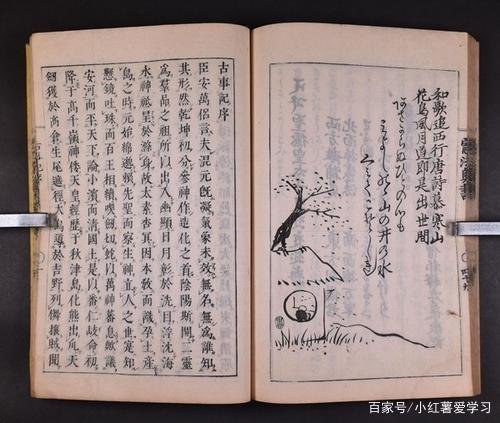 和歌追西行唐詩慕寒山
花鳥風月道即是出世間
山の井の水
古事記序
臣安萬侶言夫混元既凝氣象未效無名無爲誰知
其形然乾坤初分參神作造化之首陰陽斯開二靈
爲羣品之祖所以出入幽顯日月彰於洗目浮沈海
水神祇呈於滌身故太素杳冥因本敎而識孕土產
島之時元始綿邈頼先聖而察生神立人之世寔知
懸鏡吐珠而百王相續喫劔切蛇以萬神蕃息歟議
安河而平天下論小濱而清國土是以番仁岐命初
降于高千嶺神倭天皇經歷于秋津島化熊出爪天
劔獲於高倉生尾遮徑大烏導於吉野列儛攘賊聞
百家号/小红薯爱学习